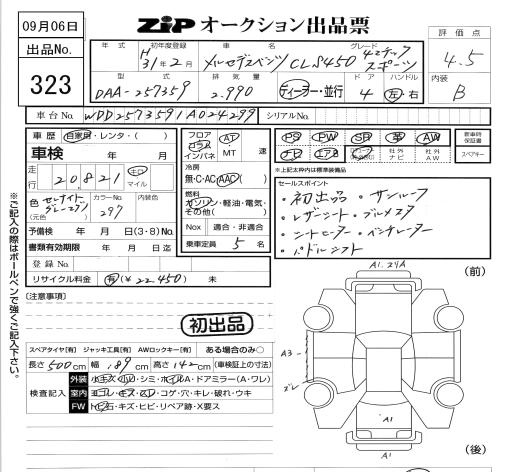 09月06日
出品No.
323
ZIPオークション出品票
評価点
4.5
内装
B
年式 初年度登録 車名 グレード
H31年2月 メルセデスベンツ CLS450 4マチック スポーツ
型式 排気量 ドア ハンドル
DAA-257359 2.990 ディーラー・並行 4 左・右
車台No. WDD2573591A024299 シリアルNo.
車歴 自家用・レンタ・( )
車検 年 月
走行 20.821 km マイル
色 (元色) セレナイトグレー カラーNo. 297 内装色
予備検 年 月 日(3・8)No.
書類有効期限 年 月 日迄
登録No.
リサイクル料金 有(¥22.450) 未
フロア コラム インパネ AT・MT 速
冷房 無・C・AC・AAC( )
燃料 ガソリン・軽油・電気・その他( )
Nox 適合・非適合
乗車定員 5 名
PS PW SR 革 AW 新車時保証書
ナビ エアB 社外ナビ 社外AW スペアキー
※上記太枠内は標準装備品
セールスポイント
・初出品 ・サンルーフ
・レザーシート ・ブルメスタ
・シートヒーター ・ベンチレーター
・パドルシフト
※ご記入の際はボールペンで強くご記入下さい。
[注意事項]
初出品
スペアタイヤ[有] ジャッキ工具[有] AWロックキー[有] ある場合のみ○
長さ500cm 幅189cm 高さ142cm (車検証上の寸法)
検査記入
外装 小キズ・凹・シミ・ホイルA・ドアミラー(A・ワレ)
室内 ヨゴレ・キズ・スレ・コゲ・穴・キレ・破れ・ウキ
FW トビ石・キズ・ヒビ・リペア跡・X要ス
(前)
A1
A3
ズレ
A1
A1
(後)